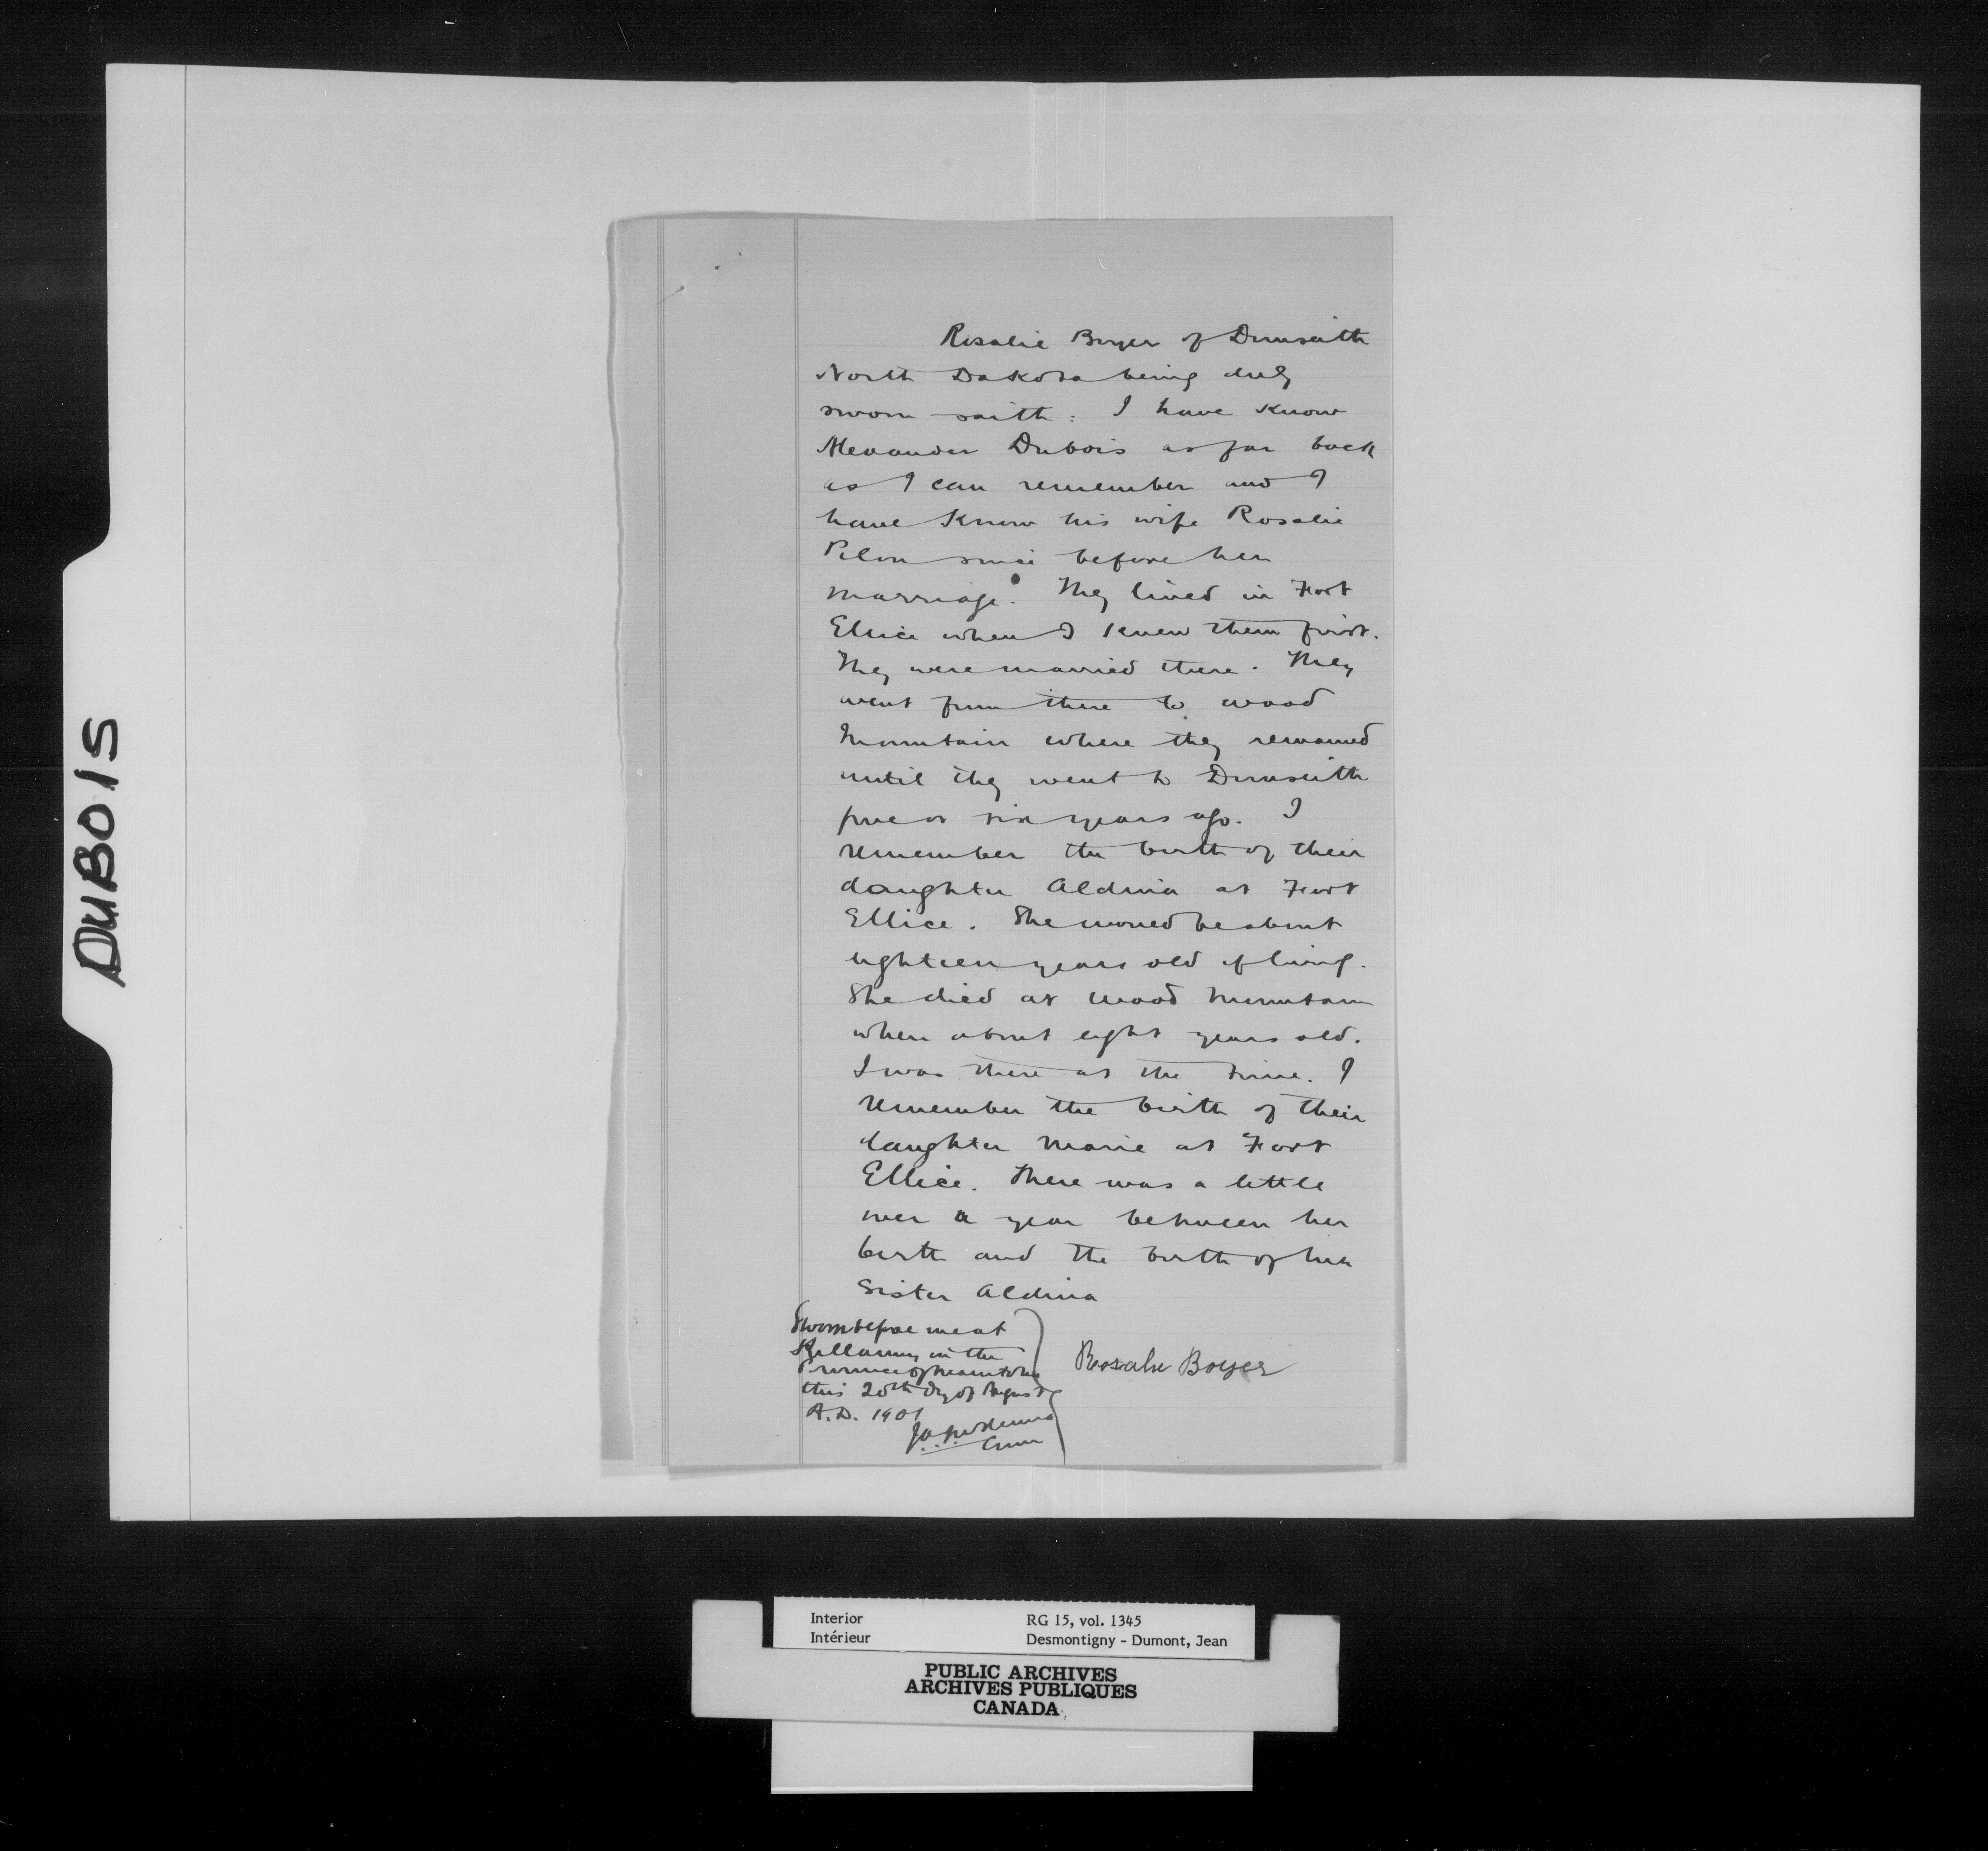 DUBOIS
Rosalie Boyer of Dunseith
North Dakota being duly
sworn saith: I have know
Alexander Dubois as far back
as I can remember and I
have know his wife Rosalie
Pilon since before her
marriage. They lived in Fort
Ellice when I knew them first.
They were married there. They
went from there to wood
Mountain where they remained
until they went to Dunseith
five or six years ago. I
remember the birth of their
daughter Aldina at Fort
Ellice. She would be about
eighteen years old if living.
She died at Wood Mountain
when about eight years old.
I was there at the time. I
remember the birth of their
daughter Marie at Fort
Ellice. There was a little
over a year between her
birth and the birth of her
Sister Aldina
Sworn before me at
Killarney in the
Province of Manitoba
this 20th day of August
A.D. 1901
Rosalie Boyer
Interior
Intérieur
RG 15, vol. 1345
Desmontigny - Dumont, Jean
PUBLIC ARCHIVES
ARCHIVES PUBLIQUES
CANADA